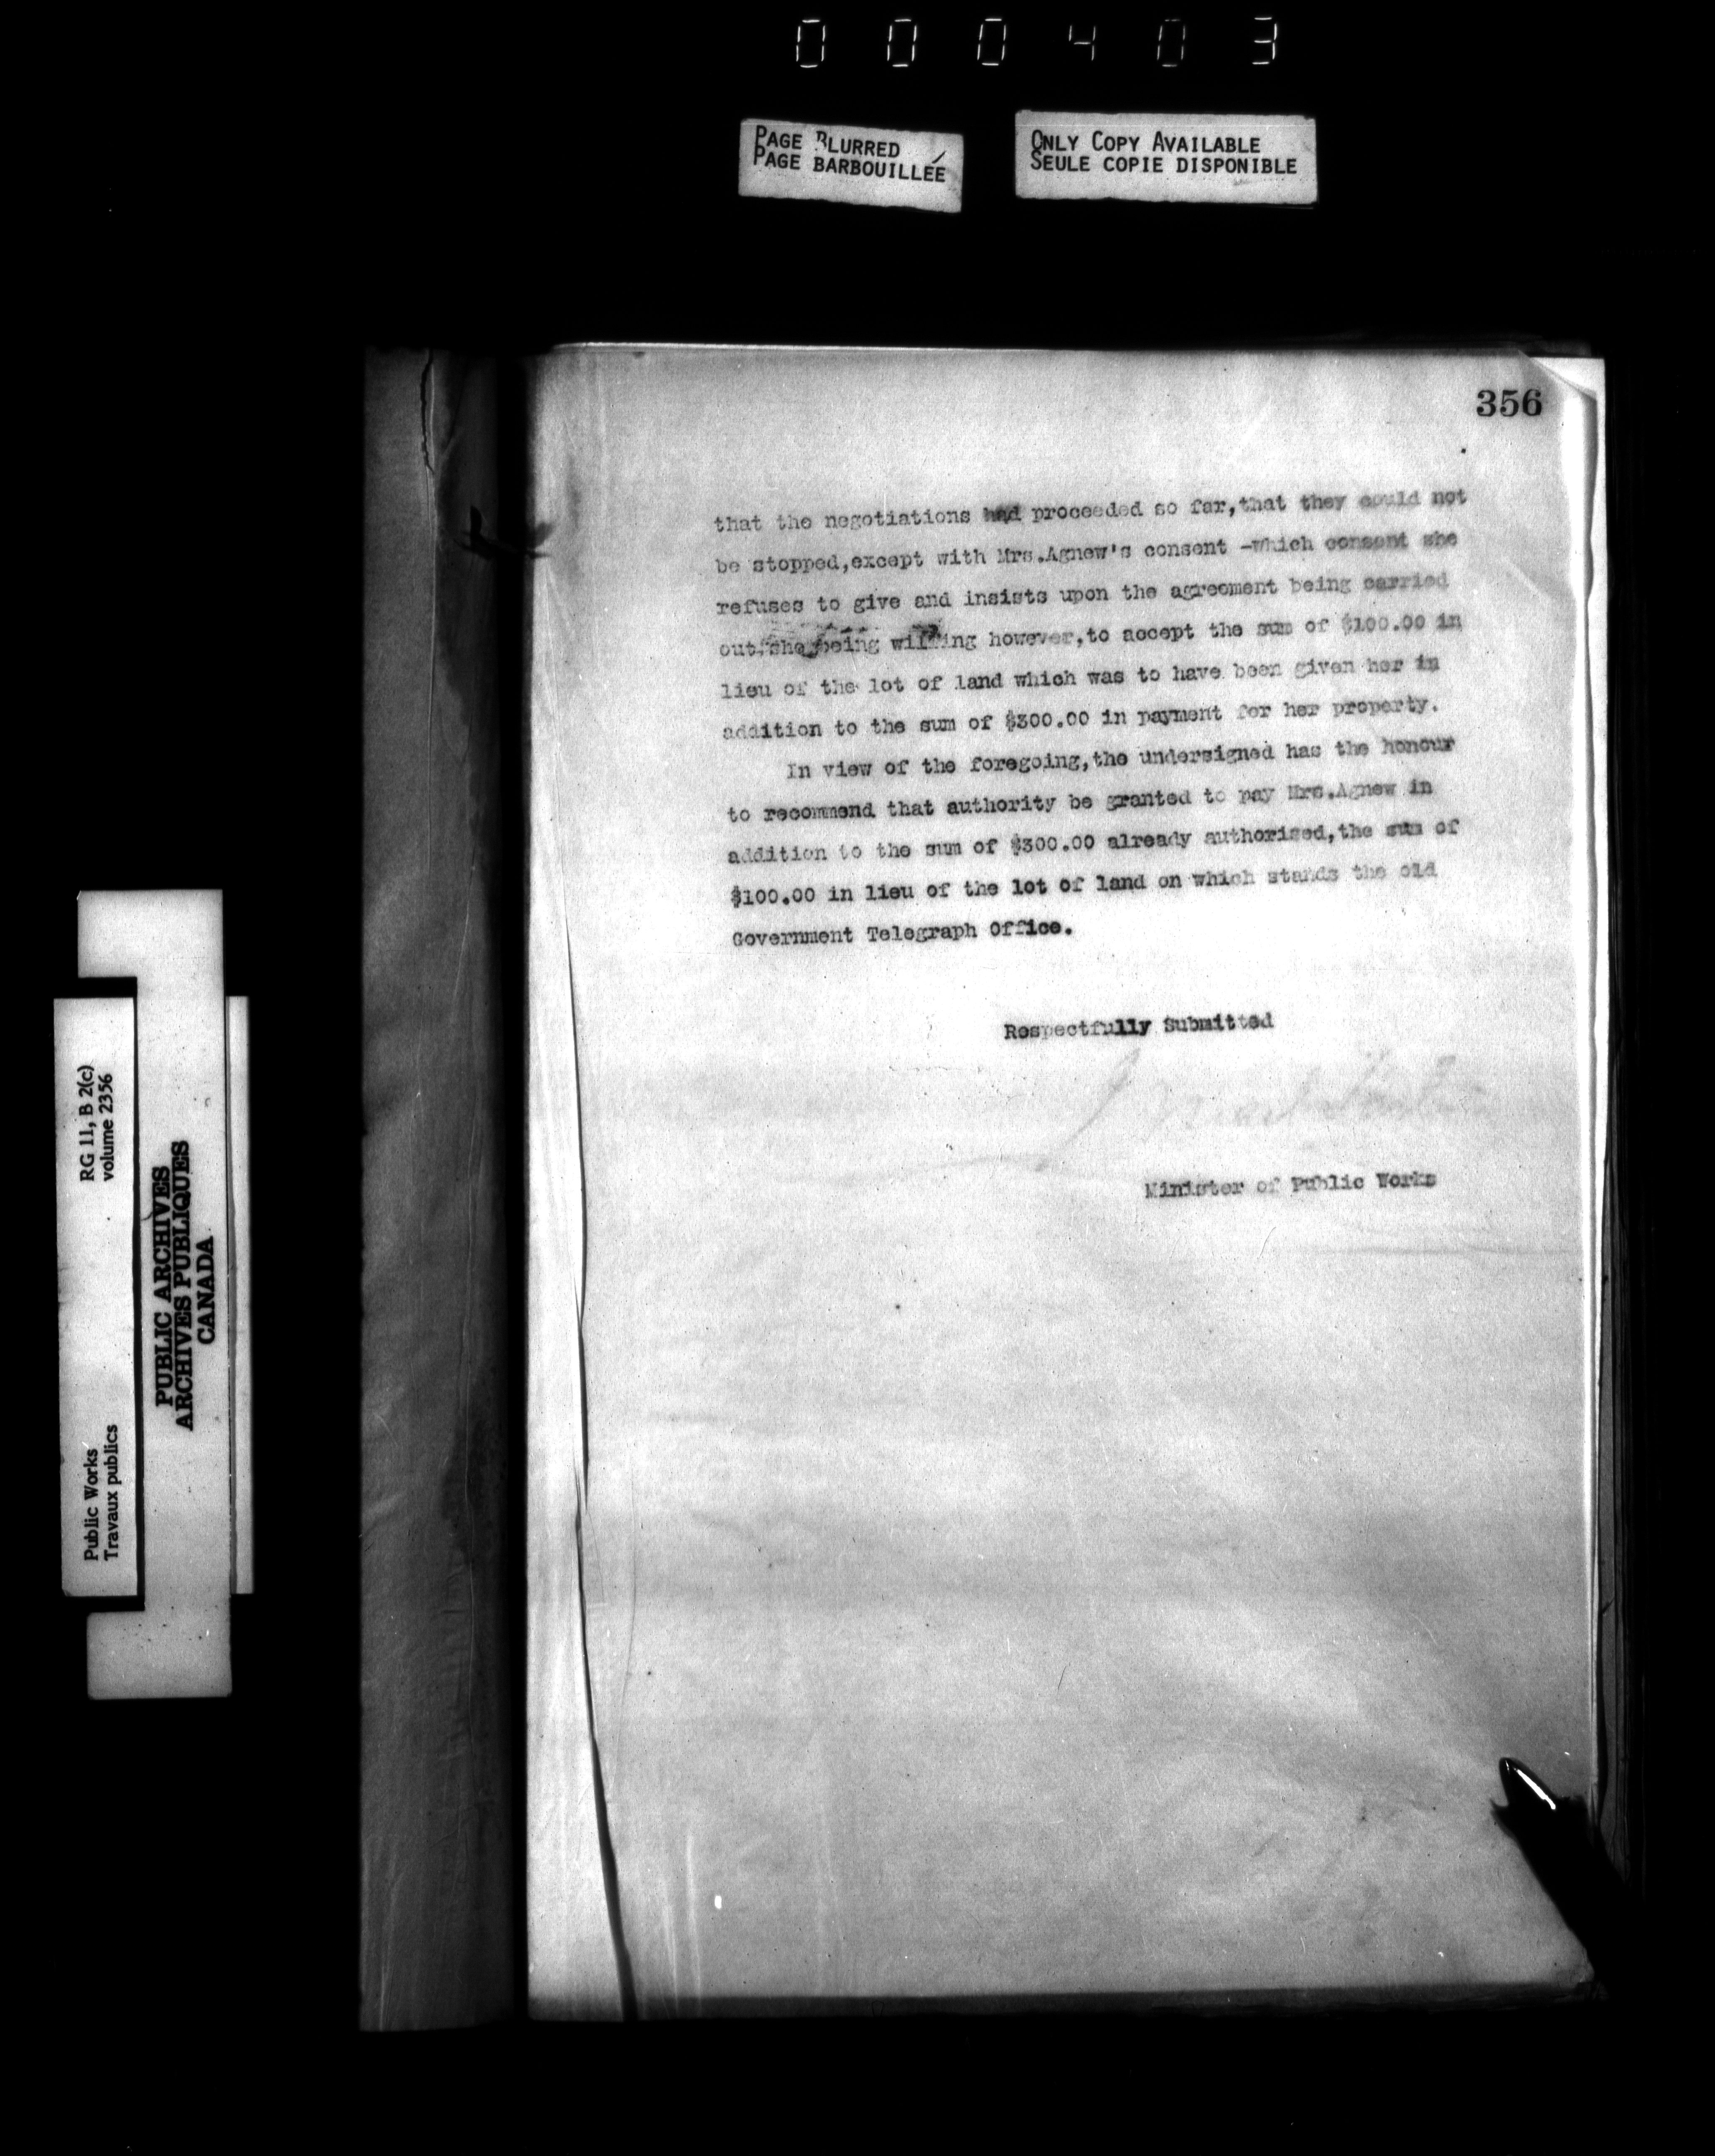 000403
PAGE BLURRED
PAGE BARBOUILLÉE
ONLY COPY AVAILABLE
SEULE COPIE DISPONIBLE
356
that the negotiations had proceeded so far,that they could not
be stopped,except with Mrs.Agnew's consent -which consent she
refuses to give and insists upon the agreement being carried
out,she being willing however,to accept the sum of $100.00 in
lieu of the lot of land which was to have been given her in
addition to the sum of $300.00 in payment for her property.
In view of the foregoing,the undersigned has the honour
to recommend that authority be granted to pay Mrs.Agnew in
addition to the sum of $300.00 already authorised,the sum of
$100.00 in lieu of the lot of land on which stands the old
Government Telegraph Office.
Respectfully Submitted
Minister of Public Works
RG 11, B 2(c)
volume 2356
PUBLIC ARCHIVES
ARCHIVES PUBLIQUES
CANADA
Public Works
Travaux publics